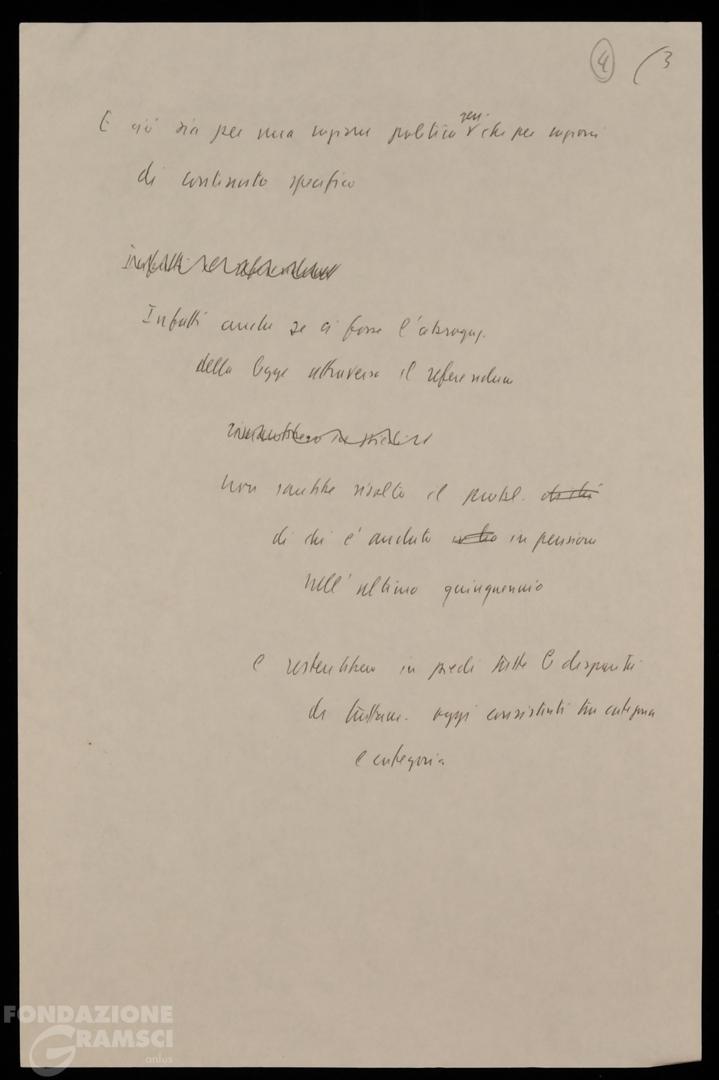 4 (3
E ciò sia per una ragione politica gen. che per ragioni
di contenuto specifico
Infatti anche se ci fosse l'abrogaz.
della legge attraverso il referendum
non sarebbe risolto il probl.
di chi è andato in pensione
nell'ultimo quinquennio
e resterebbero in piedi tutte le disparità
di trattam. oggi esistenti tra categoria
e categoria
FONDAZIONE
GRAMSCI
onlus